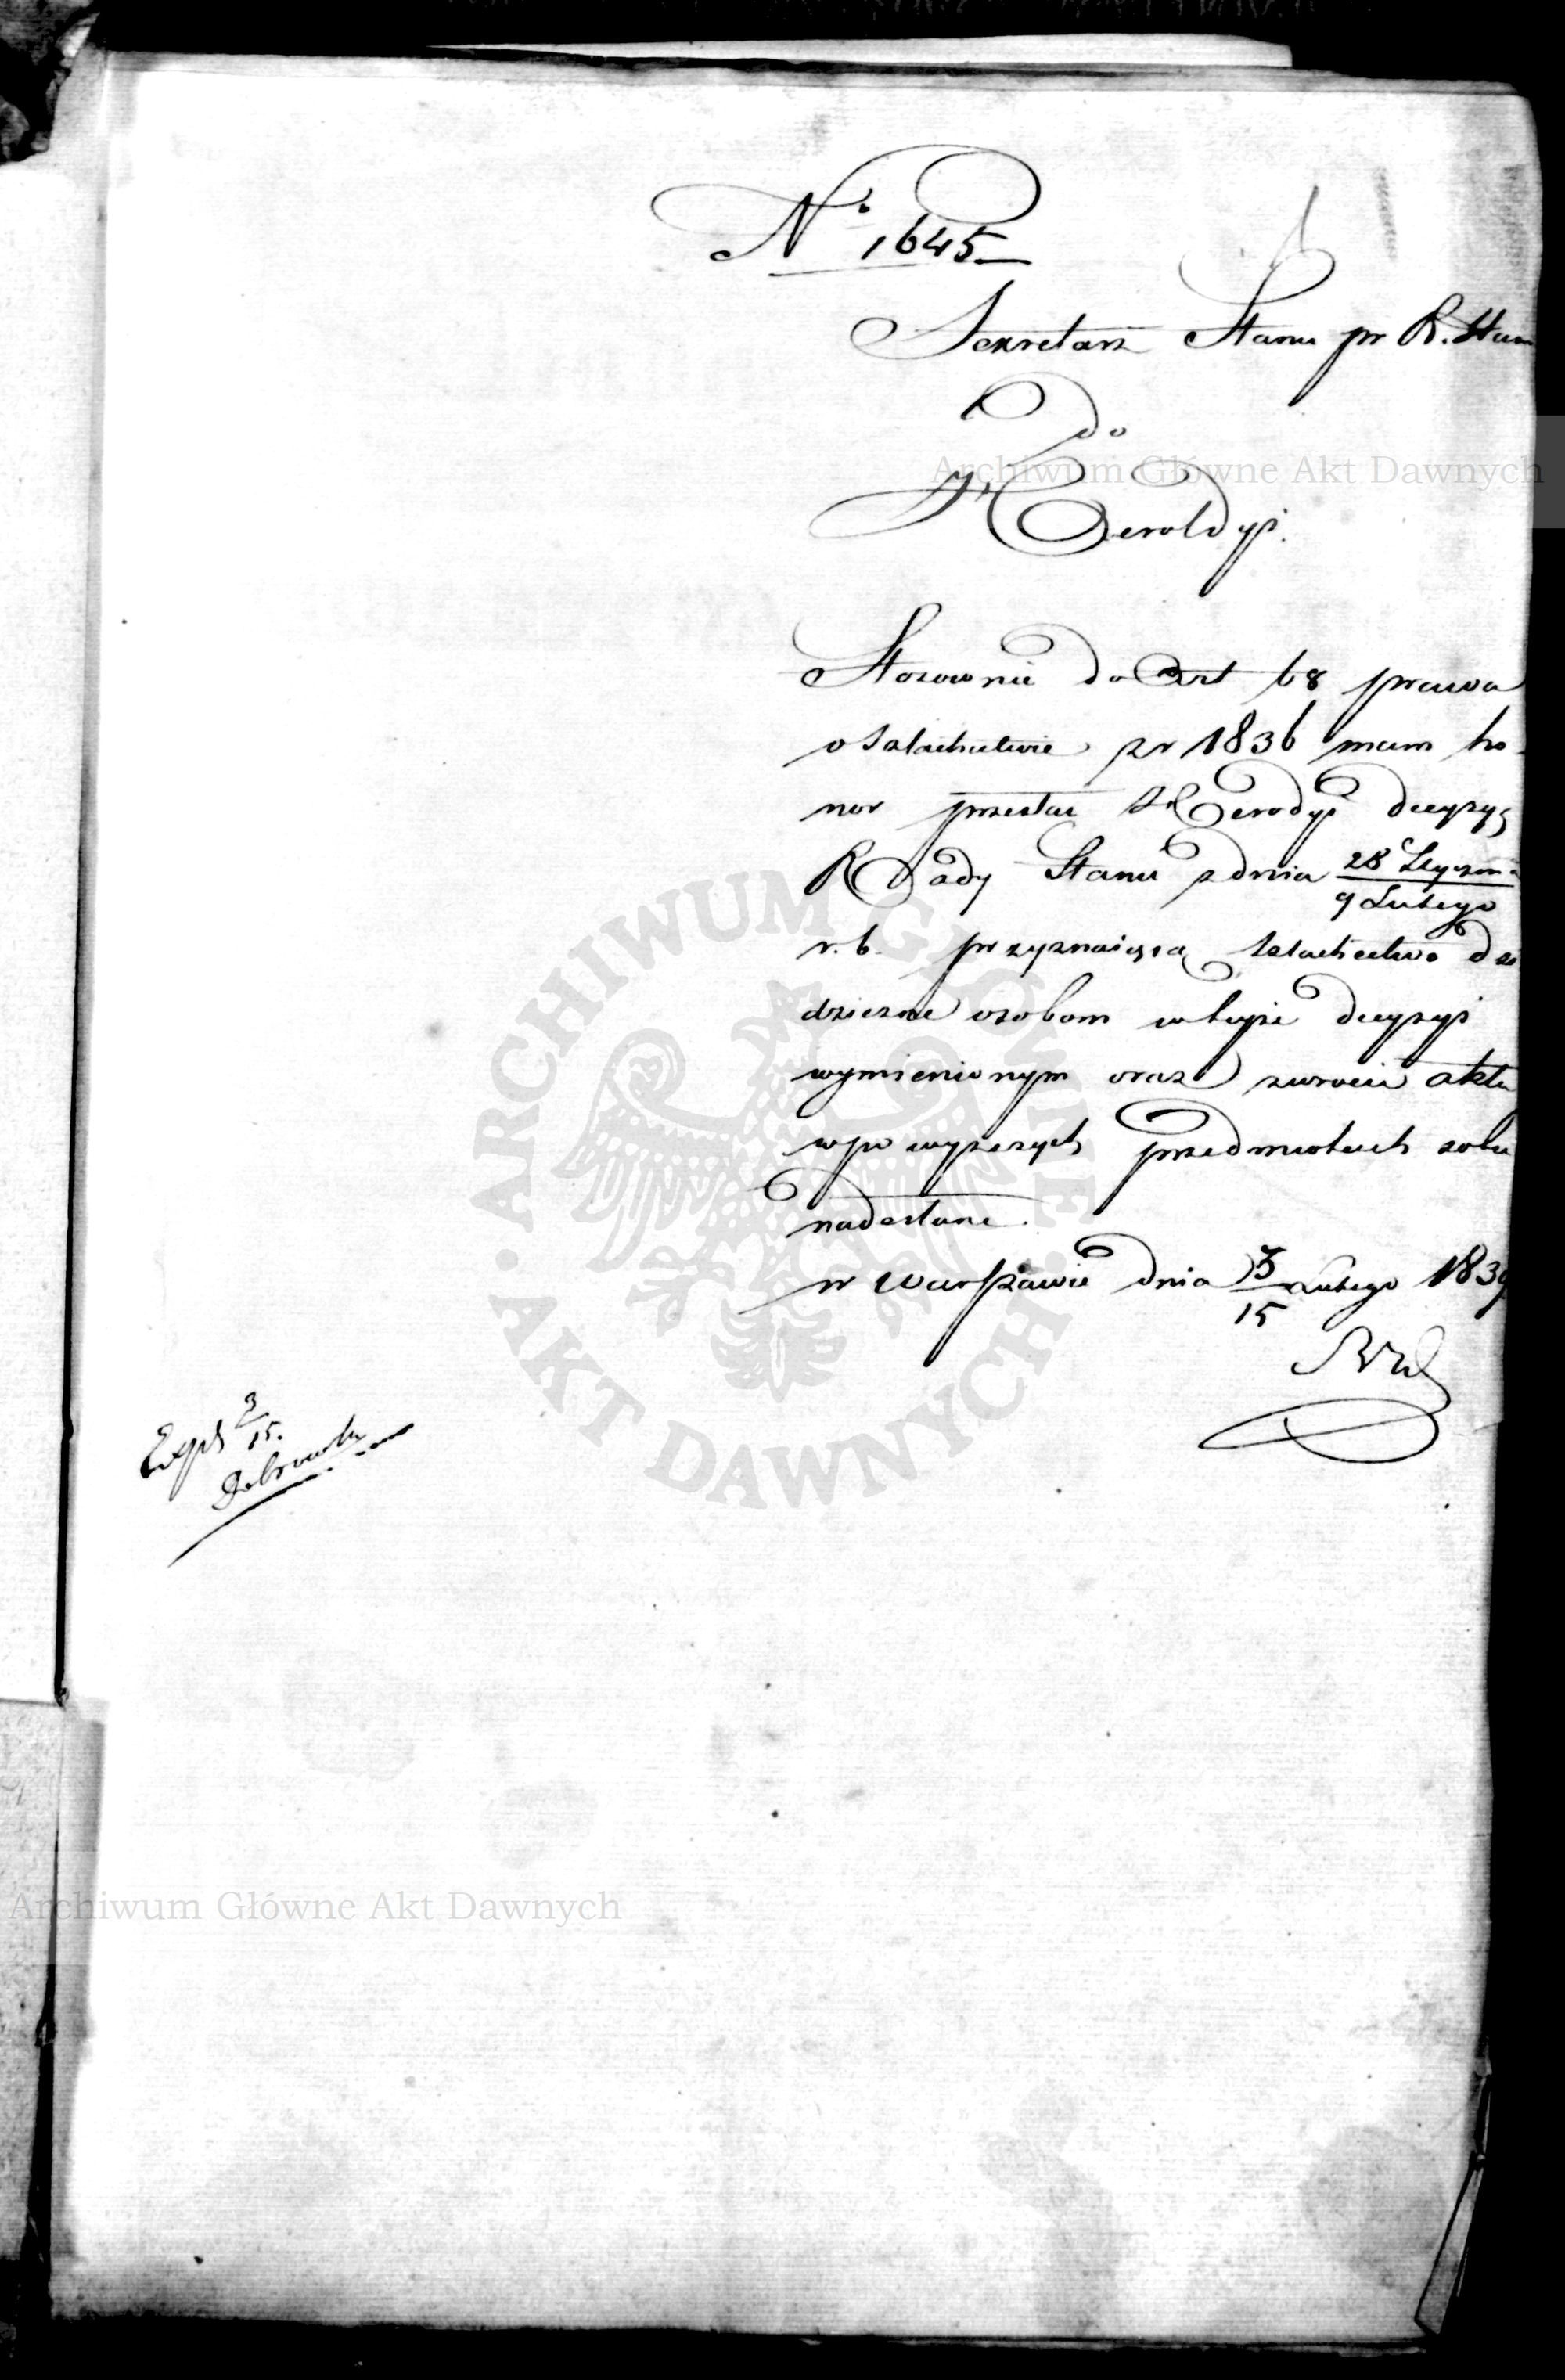 No 1645
Sekretarz Stanu pr R. Stan
do
Heroldyi.
Stosownie do Art 68 prawa
o Szlachectwie z r 1836 mam ho-
nor przesłać Herodyi decyzyą
Rady Stanu z dnia 28 Stycznia / 9 Lutego
r. b. przyznaiącą szlachectwo dzie
dziczne osobom w teyże decyzyi
wymienionym oraz zwrócić akta
w powyższych przedmiotach sobie
nadesłane.
w Warszawie dnia 3/15 Lutego 1839
Exp 3/15.
Archiwum Główne Akt Dawnych
ARCHIWUM GŁÓWNE AKT DAWNYCH
Archiwum Główne Akt Dawnych